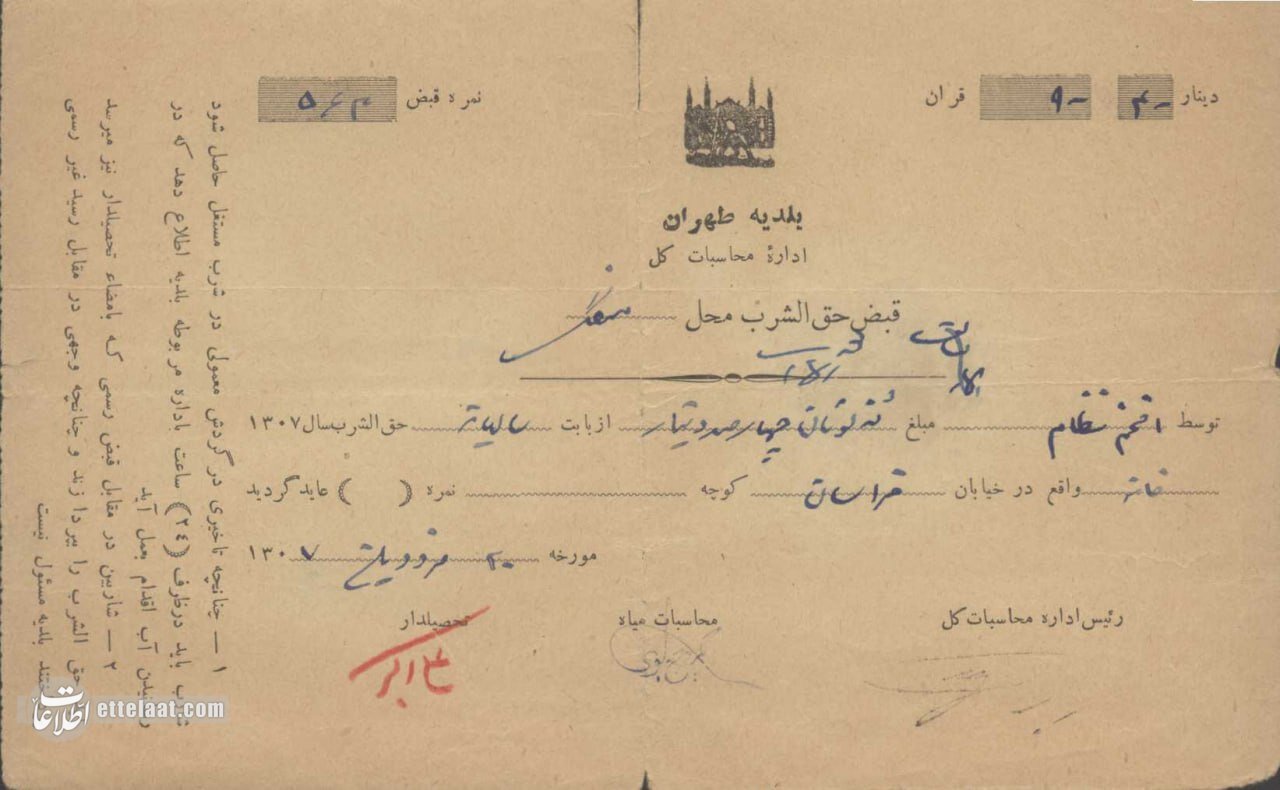 دینار ۴۰ ۹۰ قران
نمره قبض ۵۶۳
بلدیه طهران
ادارهٔ محاسبات کل
قبض حق الشرب محل سنگلج
توسط افخم نظام مبلغ نه تومان چهارصد دینار از بابت سالیانه حق الشرب سال ۱۳۰۷
خانه واقع در خیابان خراسان کوچه نمره ( ) عاید گردید
مورخه ۲۰ فروردین ۱۳۰۷
رئیس اداره محاسبات کل
محاسبات میاه
تحصیلدار
۱ — چنانچه تاخیری در گردش معمولی در شرب مستغل حاصل شود
باید در ظرف (۲۴) ساعت باداره مربوطه بلدیه اطلاع دهد که در
رسیدن آب اقدام بعمل آید
۲ — شاربین در مقابل قبض رسمی که بامضاء تحصیلدار نیز میرسد
حق الشرب را بپردازند و چنانچه وجهی در مقابل رسید غیر رسمی
بلدیه مسئول نیست
اطلاعات
ettelaat.com